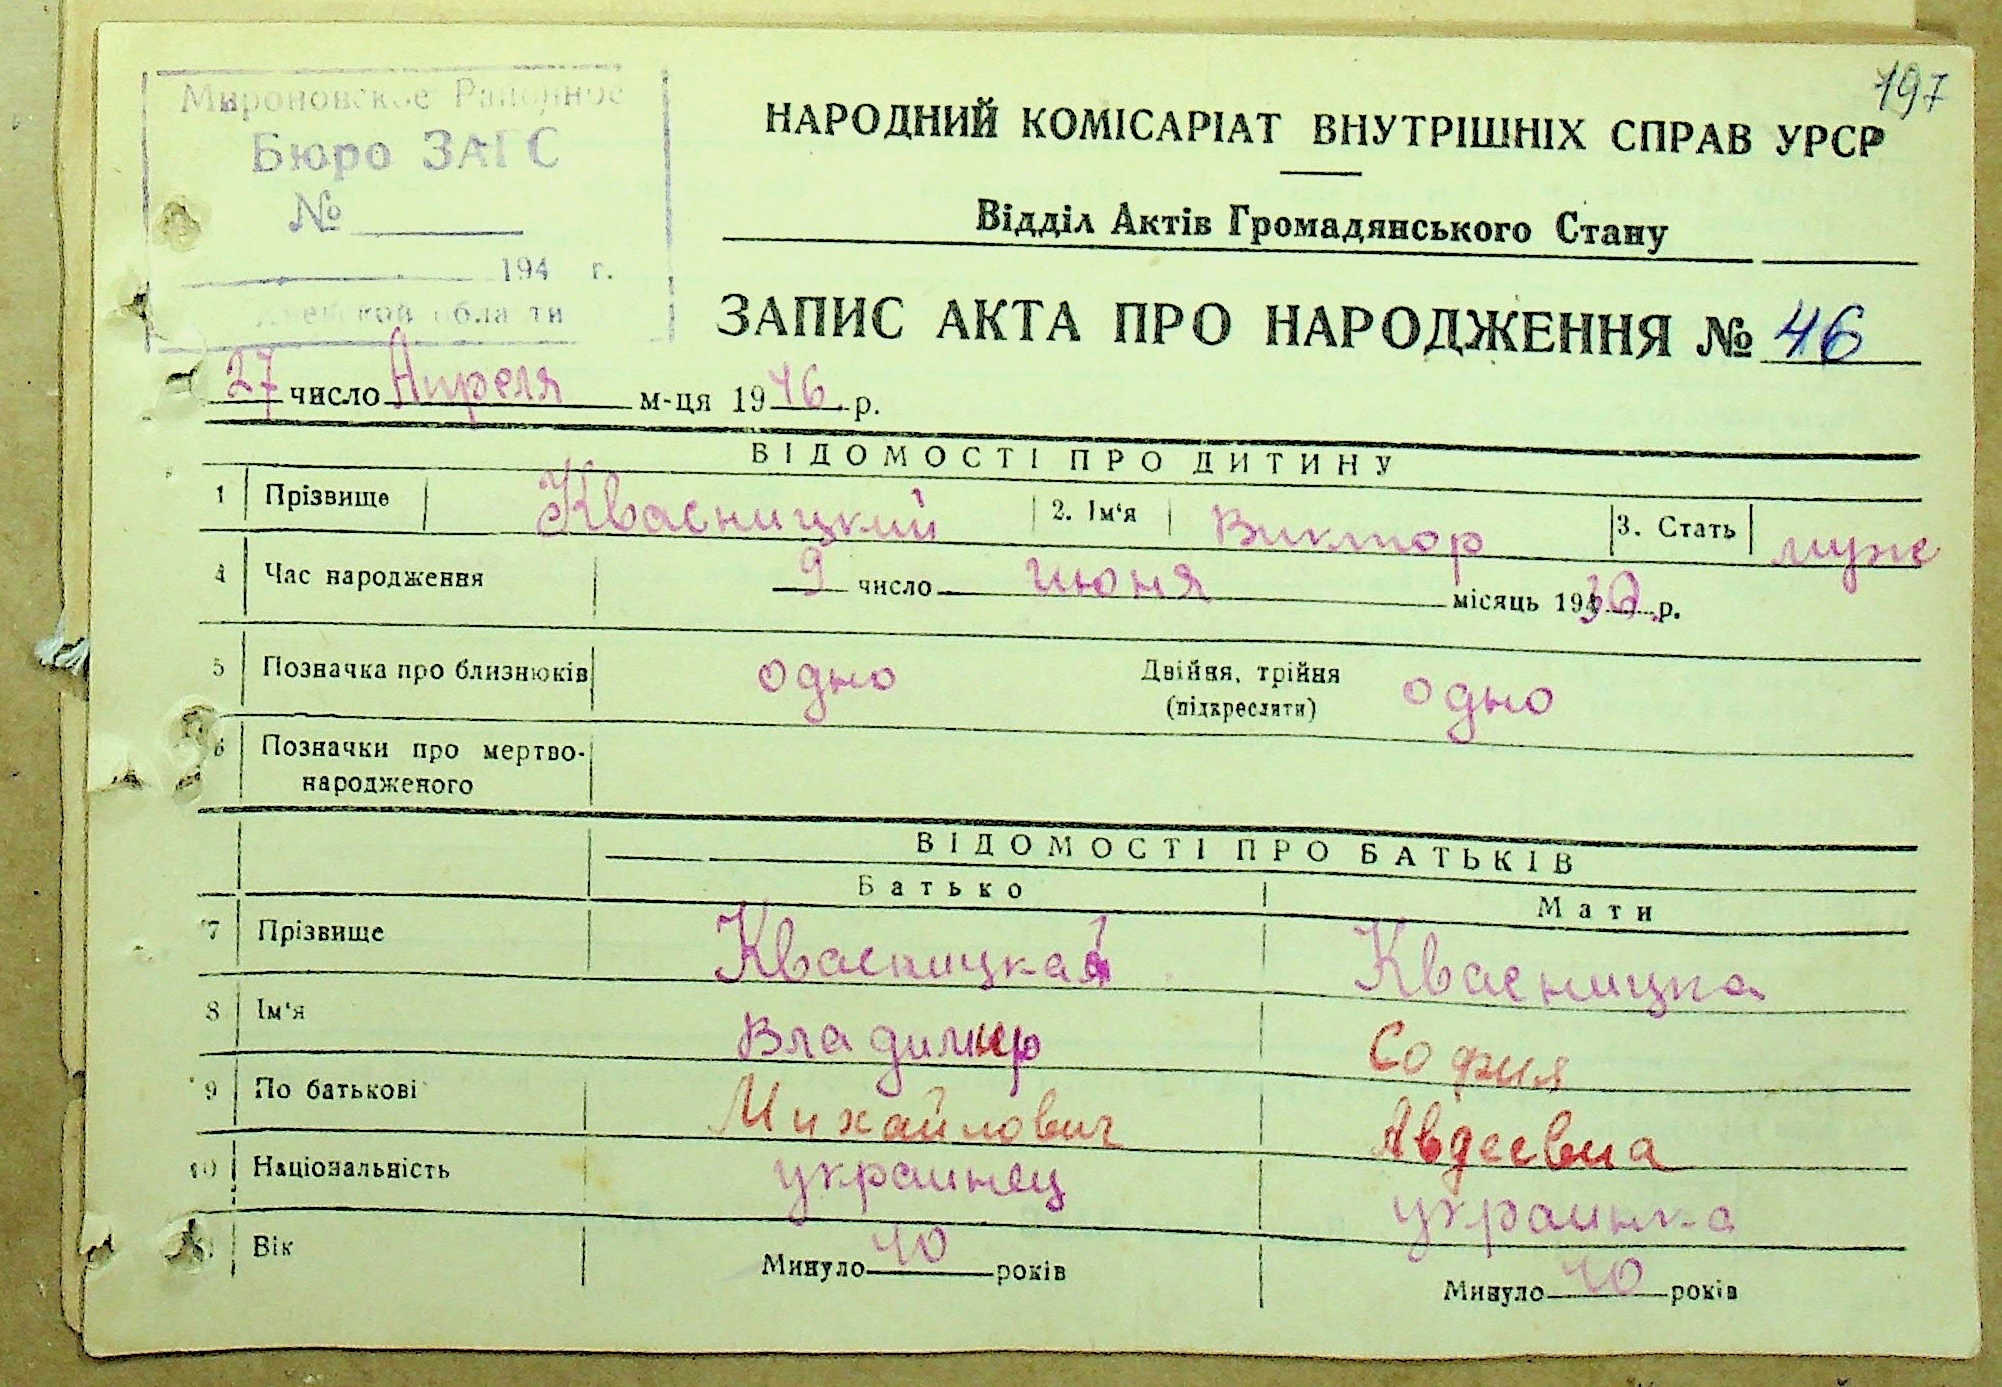 197
Мироновское Районное
Бюро ЗАГС
№
194 г.
области
НАРОДНИЙ КОМІСАРІАТ ВНУТРІШНІХ СПРАВ УРСР
Відділ Актів Громадянського Стану
ЗАПИС АКТА ПРО НАРОДЖЕННЯ № 46
27 число Апреля м-ця 1946 р.
ВІДОМОСТІ ПРО ДИТИНУ
1 Прізвище Квасницкий 2. Ім‘я Виктор 3. Стать муж
4 Час народження 9 число июня місяць 19 р.
5 Позначка про близнюків одно Двійня, трійня (підкреслити) одно
6 Позначки про мертво-
народженого
ВІДОМОСТІ ПРО БАТЬКІВ
Батько Мати
7 Прізвище Квасницкий Квасницка
8 Ім‘я Владимир София
9 По батькові Михайлович Авдеевна
10 Національність украинец украинка
11 Вік Минуло 40 років Минуло 40 років